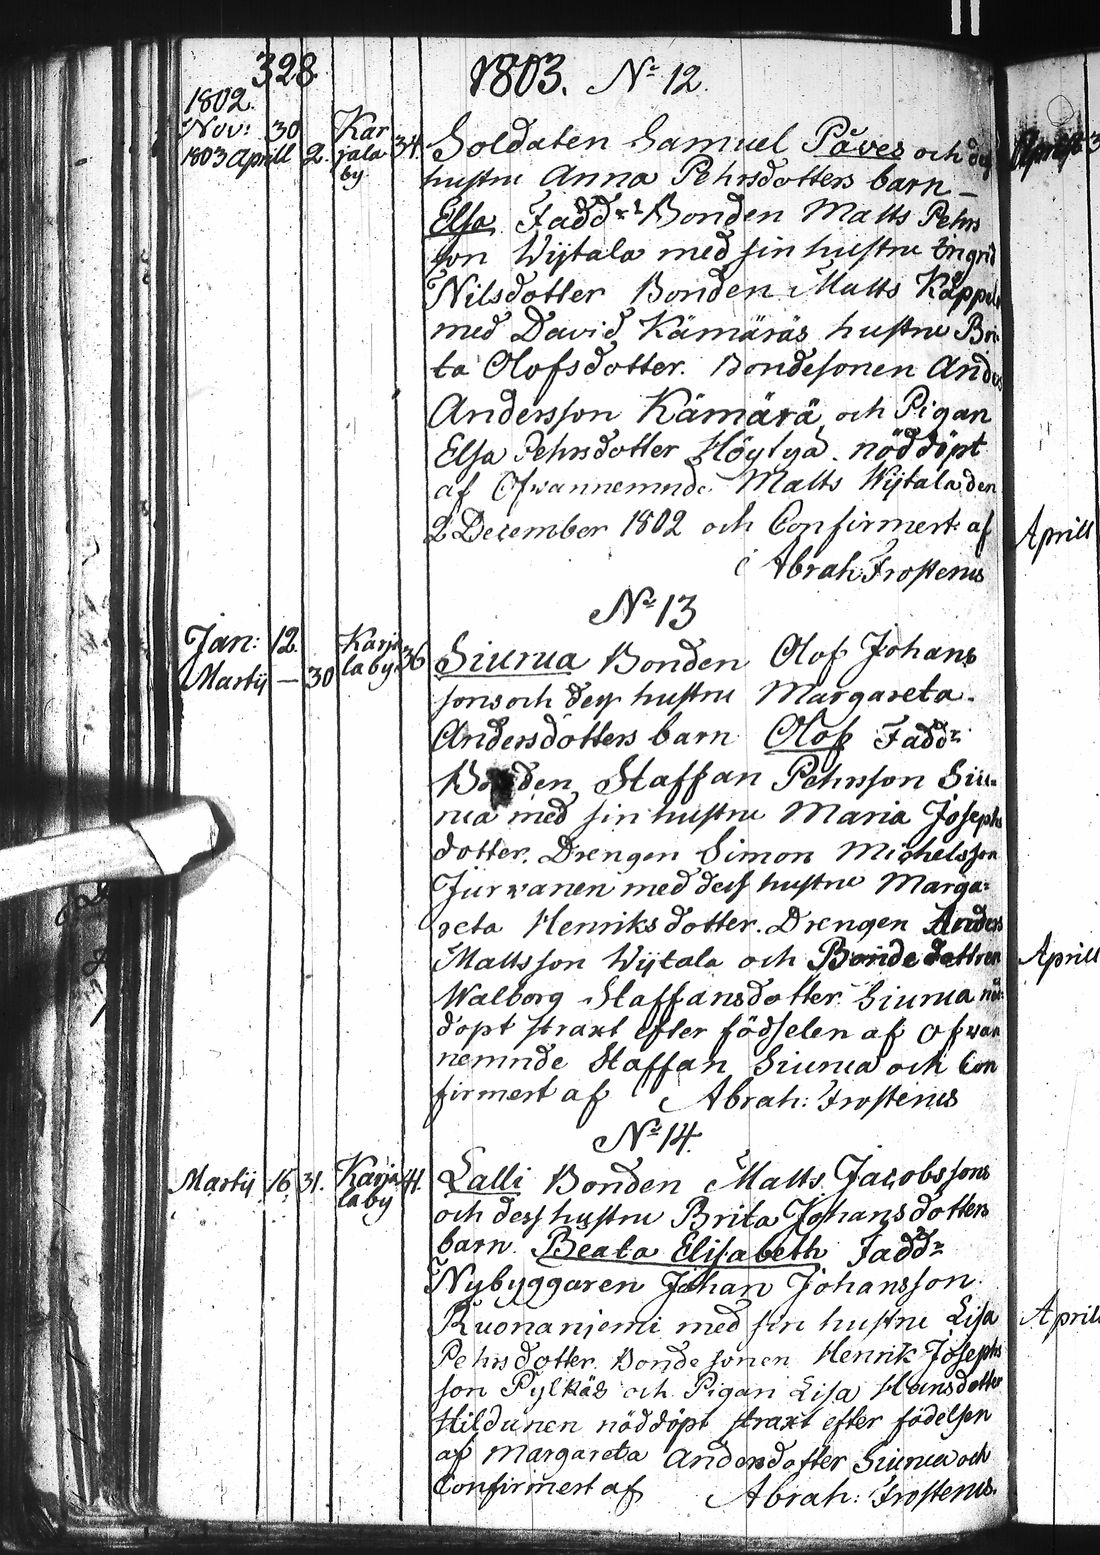 328
1803. No 12.
1802.
Nov: 30
1803 Aprill 2.
Kar
jala
by
34.
Soldaten Samuel Påves och dess
hustru Anna Pehrsdotters barn
Elsa Fadd:r Bonden Matts Pehrs
son Wijtala med sin hustru Ingrid
Nilsdotter Bonden Matts Käppele
med David Kämäräs hustru Bri-
ta Olofsdotter. Bondesonen Anders
Andersson Kämärä och Pigan
Elsa Pehrsdotter Höylyä. nöddöpt
af Ofwannemnde Matts Wijtala den
2 December 1802 och Confirmert af
Abrah: Frosterus
No 13
Jan: 12.
Martij — 30
Karja
la by
36
Siurua Bonden Olof Johans
sons och dess hustru Margareta
Andersdotters barn Olof Fadd:r
Bonden Staffan Pehrsson Siu-
rua med sin hustru Maria Josephs
dotter. Drengen Simon Michelsson
Jurwanen med dess hustru Marga-
reta Henriksdotter. Drengen Anders
Mattsson Wijtala och Bonde dottren
Walborg Staffansdotter Siurua nöd-
döpt straxt efter födselen af ofwan
nemnde Staffan Siurua och Con
firmert af Abrah: Frosterus
No 14.
Martij 16. 31.
Karja
la by
41.
Lalli Bonden Matts Jacobssons
och dess hustru Brita Johansdotters
barn. Beata Elisabeth Fadd:r
Nybyggaren Johan Johansson
Kuonanjemi med sin hustru Lisa
Pehrsdotter. Bondesonen Henrik Josephs
son Pylkäs och Pigan Lisa Hansdotter
Hildunen nöddöpt straxt efter födelsen
af Margareta Andersdotter Siurua och
Confirmert af Abrah: Frosterus.
Aprill
Aprill
Aprill